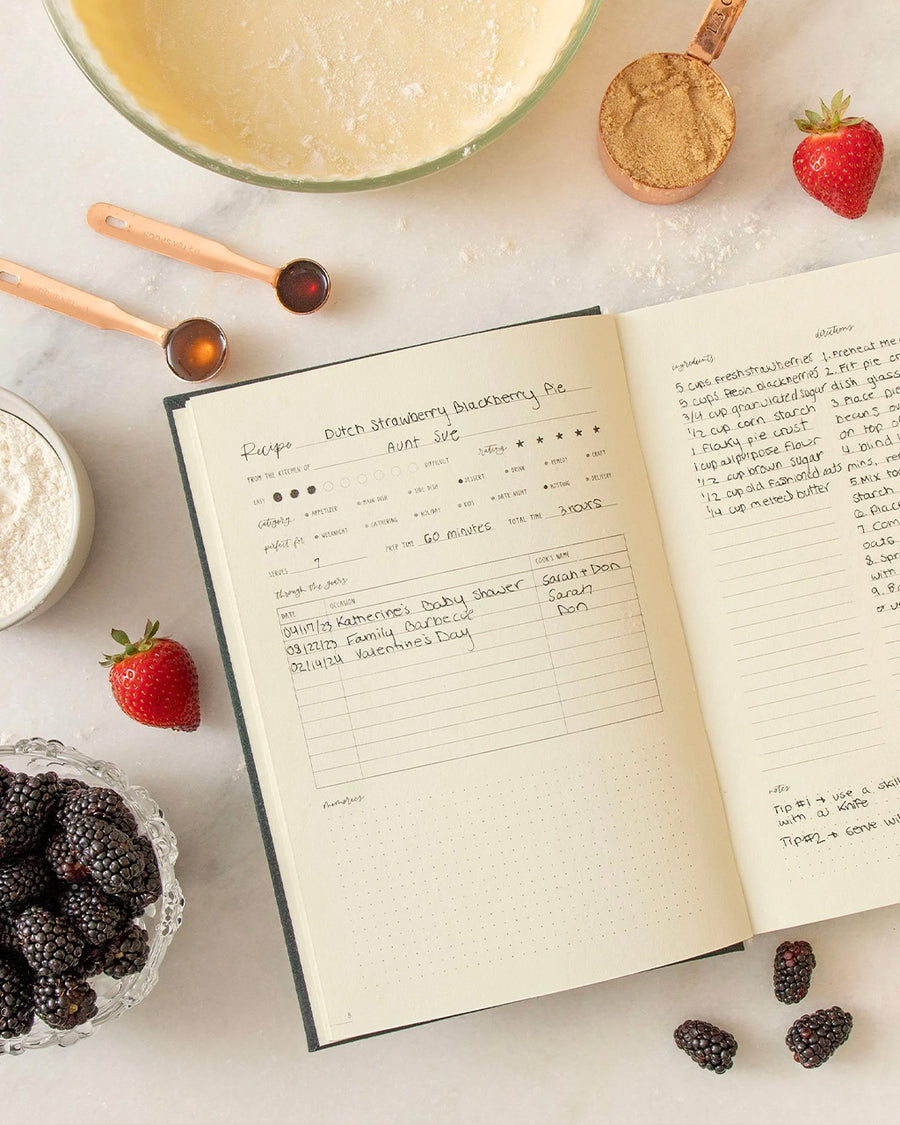 Recipe Dutch Strawberry Blackberry Pie
FROM THE KITCHEN OF Aunt Sue
EASY DIFFICULT rating ★ ★ ★ ★ ★
category APPETIZER MAIN DISH SIDE DISH DESSERT DRINK REMEDY CRAFT
perfect for WEEKNIGHT GATHERING HOLIDAY KIDS DATE NIGHT HOSTING DELIVERY
SERVES 7 PREP TIME 60 minutes TOTAL TIME 3 hours
through the years
DATE OCCASION COOK'S NAME
04/17/23 Katherine's Baby Shower Sarah + Don
08/22/23 Family Barbecue Sarah
02/14/24 Valentine's Day Don
memories
8
ingredients
5 cups fresh strawberries
5 cups fresh blackberries
3/4 cup granulated sugar
1/2 cup corn starch
1 flaky pie crust
1 cup all purpose flour
1/2 cup brown sugar
1/2 cup old fashioned oats
1/4 cup melted butter
directions
1. Preheat the
2. Fit pie
dish glass
3. Place
beans
on top
4. blind
mins,
5. Mix
starch
6. Place
7.
oats
8.
with
9.
or
notes
Tip #1 → use a
with a knife
Tip #2 → Serve